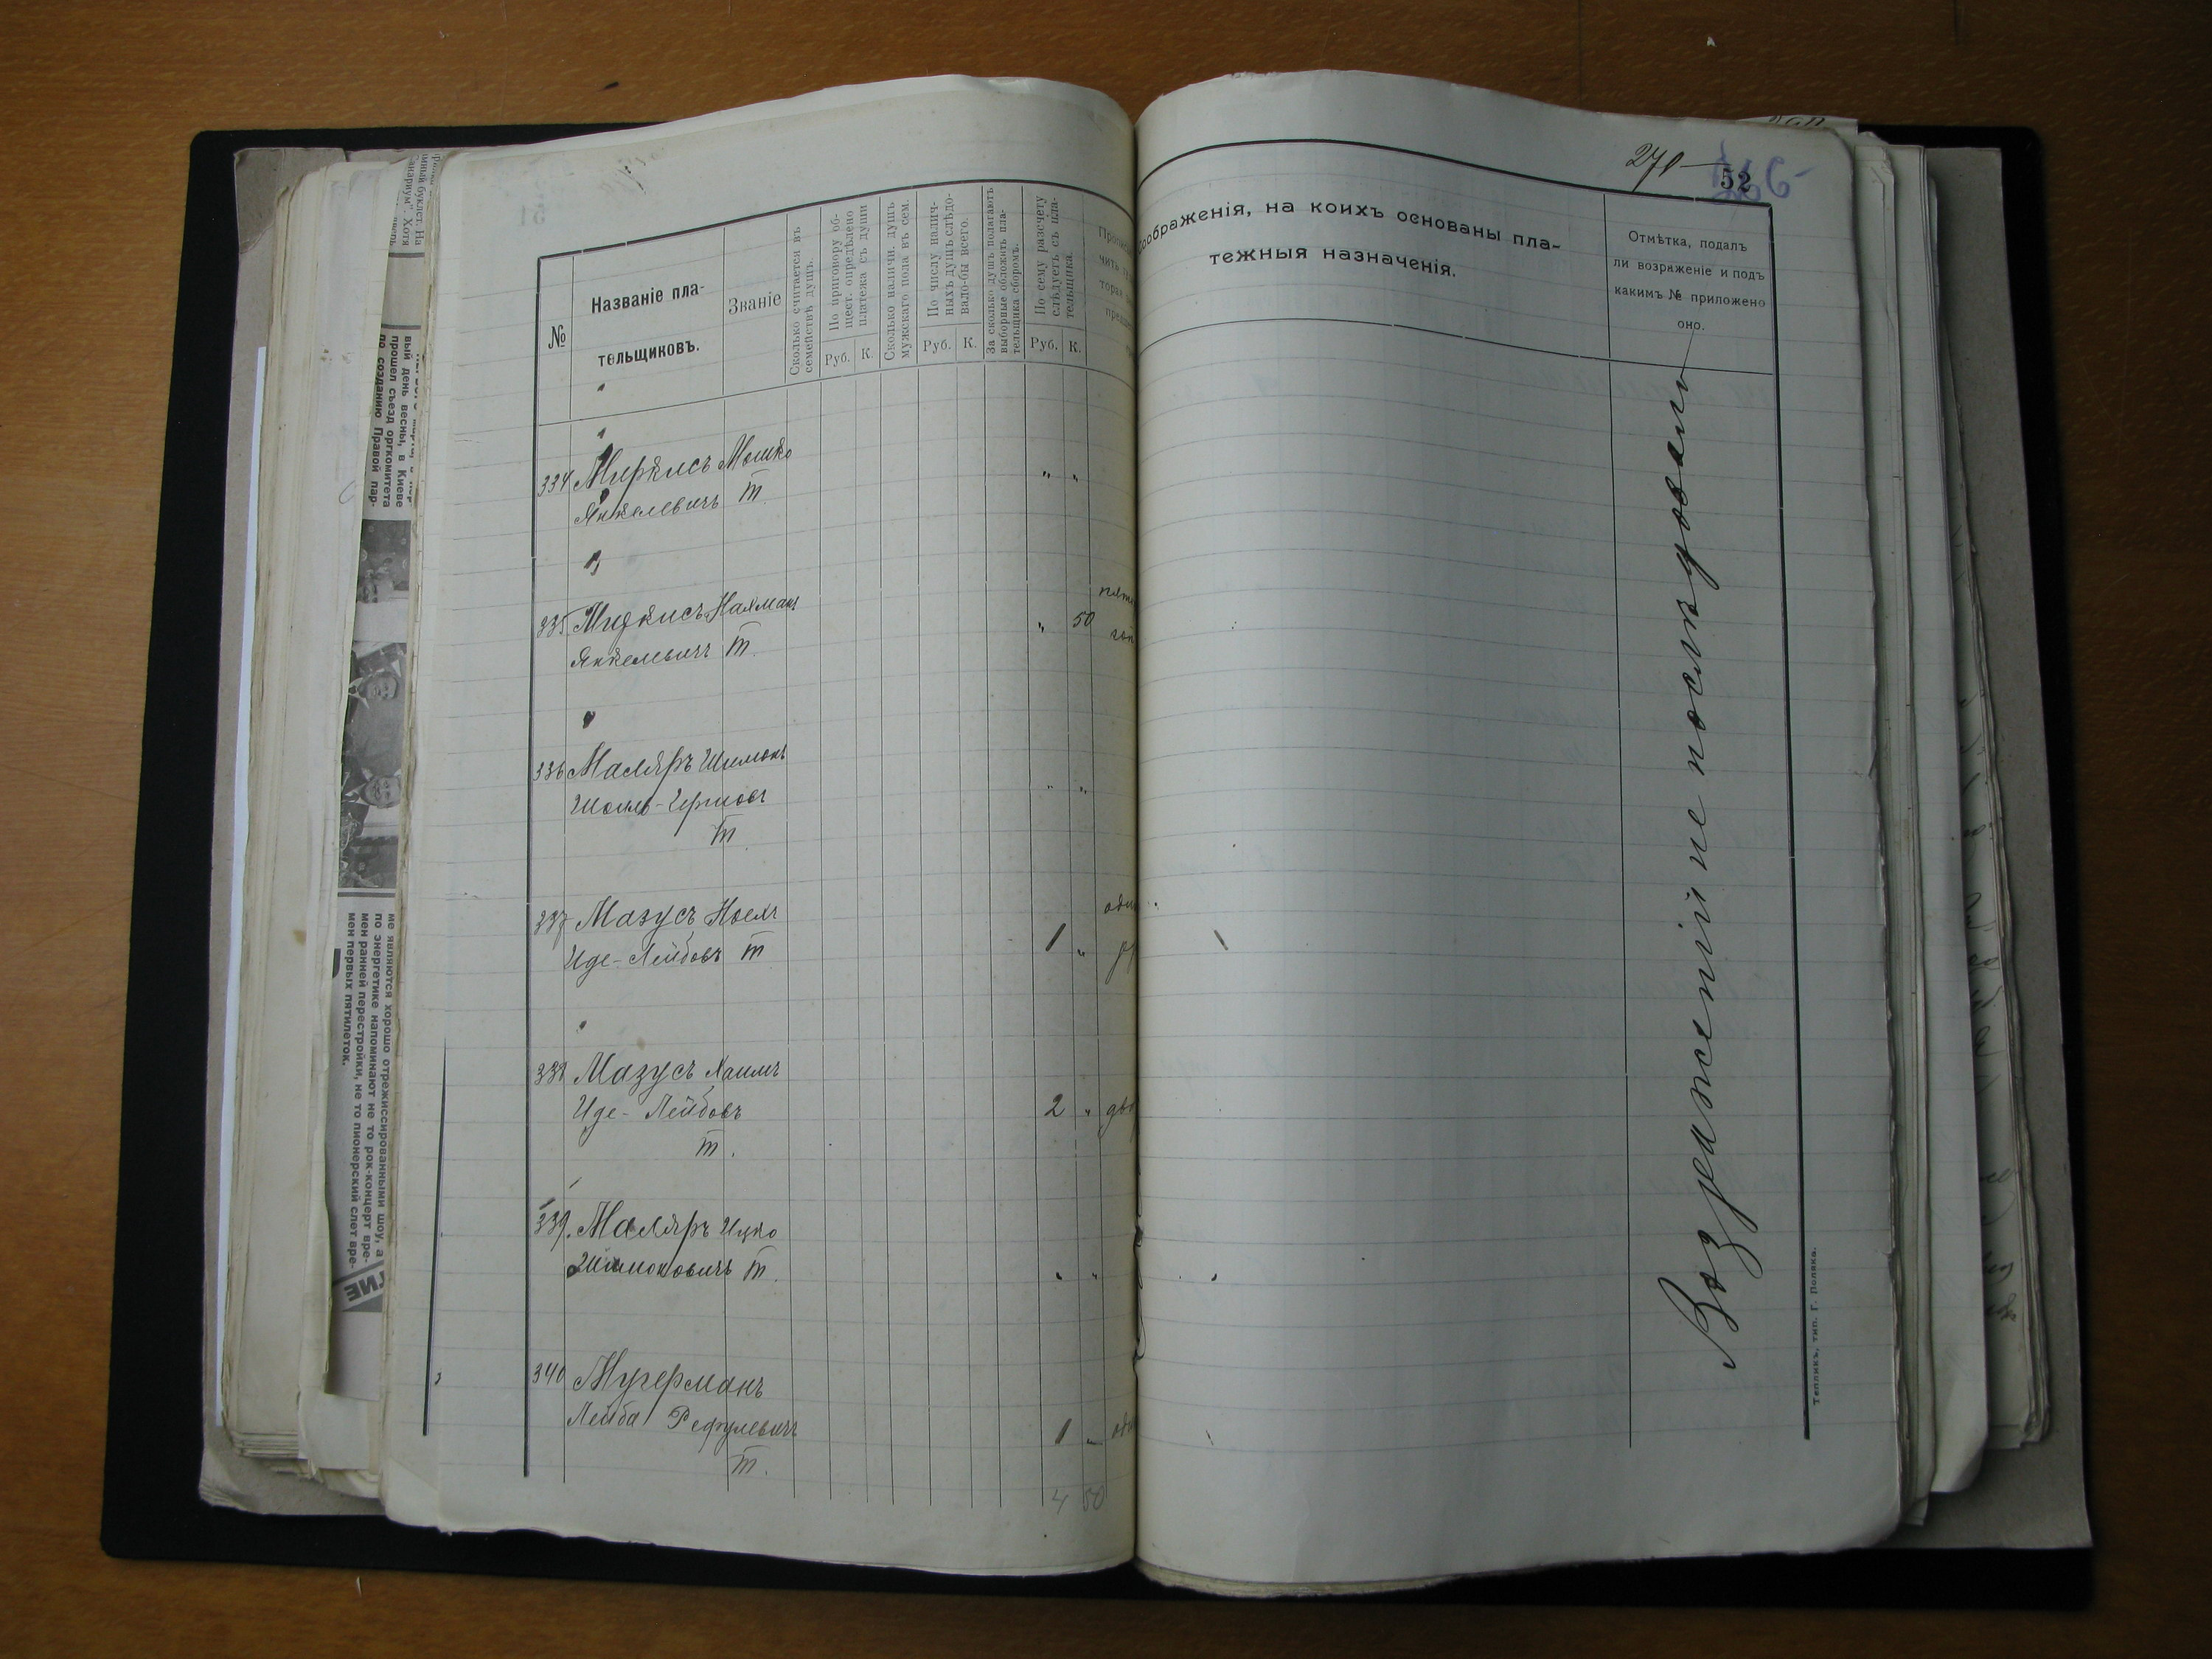 №
Названіе пла-
тельщиковъ.
Званіе
Сколько считается въ
семействѣ душъ.
По приговору об-
щест. опредѣлено
платежа съ души
Руб. К.
Сколько наличн. душъ
мужскаго пола въ сем.
По числу налич-
ныхъ душъ слѣдо-
вало-бы всего.
Руб. К.
За сколько душъ полагаютъ
выборные обложить пла-
тельщика сборомъ.
По сему разсчету
слѣдуетъ съ пла-
тельщика.
Руб. К.
334 Миркисъ Мошко
Янкелевичъ m " "
335 Миркисъ Нахманъ
Янкелевичъ m " 50
336 Маляръ Шимонъ
Шоилъ-Гершовъ
m " "
337 Мазусъ
Иде-Лейбовъ m 1 "
338 Мазусъ Хаимъ
Иде-Лейбовъ 2 "
m.
339. Маляръ Ицко
Шимоновичъ m. " "
340 Мугерманъ
Лейба 1 "
m.
4 50
270
52
ображенія, на коихъ основаны пла-
тежныя назначенія.
Отмѣтка, подалъ
ли возраженіе и подъ
какимъ № приложено
оно.
Возраженій не послѣдовали
Тепликъ, тип. Г. Поляка.
вый день весны, в Киеве
прошел съезд оргкомитета
по созданию Правой пар-
ме являются хорошо отрежиссированными шоу, а
по энергетике напоминают не то рок-концерт вре-
мен ранней перестройки, не то пионерский слет вре-
мен первых пятилеток.